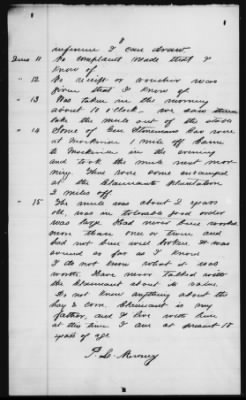 8
inference I can draw.
Ques 11 No complaint made that I
know of
" 12 No receipt or voucher was
given that I know of
- 13 Was taken in the morning
about 10 o'clock - we saw them
take the mule out of the stable
- 14 Some of Gen Stonemans Cav were
at Mocksville 1 mile off came
to Mocksville in the evening
and took the mule next mor-
ning. They were some encamped
at the Claimants plantation
2 miles off
- 15 The mule was about 2 years
old, was in tolerable good order
was large. Had never been worked
more than once or twice and
had not been well broken. It was
sound so far as I know
I do not know what it was
worth. Have never talked with
the claimant about its value.
Do not know anything about the
hay & corn. Claimant is my
father, and I live with him
at this time I am at present 18
years of age